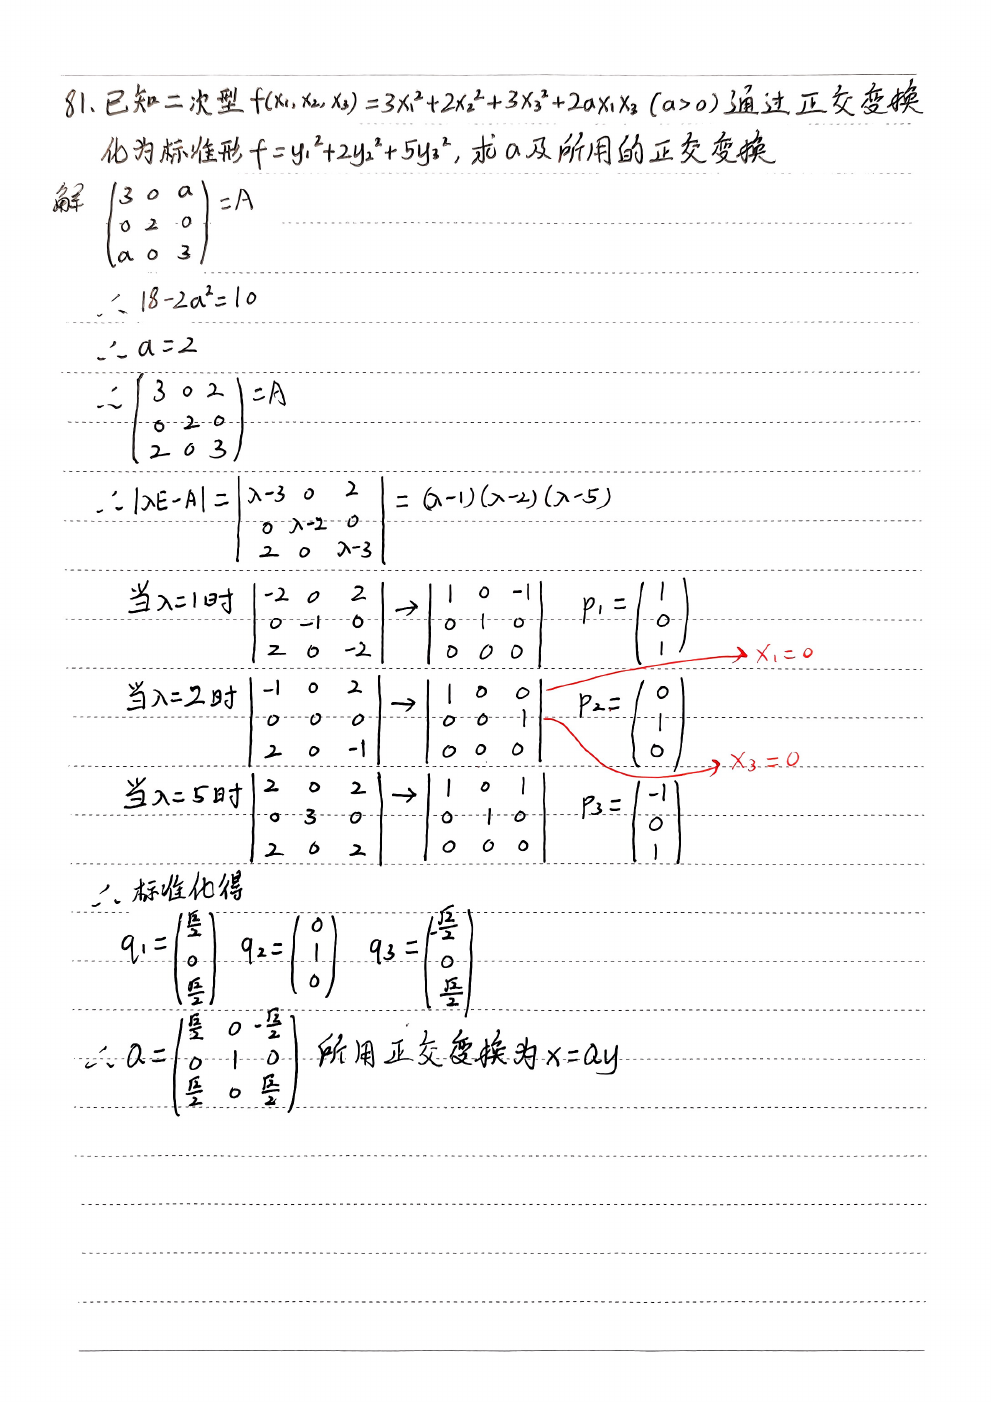 81. 已知二次型 f(x₁, x₂, x₃) = 3x₁²+2x₂²+3x₃²+2ax₁x₃ (a>0) 通过正交变换
化为标准形 f = y₁²+2y₂²+5y₃², 求a及所用的正交变换
解 (3 0 a
0 2 0
a 0 3) = A
∴ 18-2a²=10
∴ a=2
∴ (3 0 2
0 2 0
2 0 3) = A
∴ |λE-A| = |λ-3 0 2
0 λ-2 0
2 0 λ-3| = (λ-1)(λ-2)(λ-5)
当λ=1时 |-2 0 2
0 -1 0
2 0 -2| → |1 0 -1
0 1 0
0 0 0| p₁ = (1
0
1)
x₁=0
当λ=2时 |-1 0 2
0 0 0
2 0 -1| → |1 0 0
0 0 1
0 0 0| p₂ = (0
1
0)
x₃=0
当λ=5时 |2 0 2
0 3 0
2 0 2| → |1 0 1
0 1 0
0 0 0| p₃ = (-1
0
1)
∴ 标准化得
q₁ = (√2/2
0
√2/2) q₂ = (0
1
0) q₃ = (-√2/2
0
√2/2)
∴ Q = (√2/2 0 -√2/2
0 1 0
√2/2 0 √2/2) 所用正交变换为 x=Qy